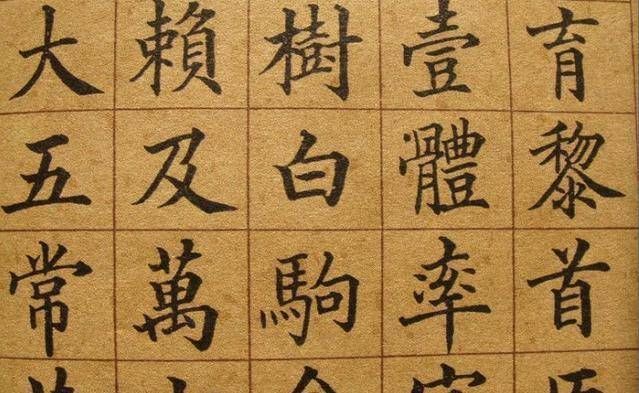 育黎首
壹體率
樹白駒
賴及萬
大五常